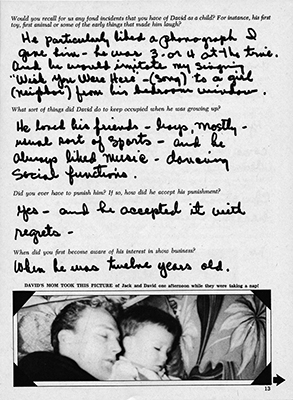 Would you recall for us any fond incidents that you have of David as a child? For instance, his first
toy, first animal or some of the early things that made him laugh?
He particularly liked a phonograph I
gave him - he was 3 or 4 at the time.
And he would imitate my singing
"Wish You Were Here" - (song) to a girl
(neighbor) from his bedroom window.
What sort of things did David do to keep occupied when he was growing up?
He loved his friends - boys, mostly -
usual sort of sports - and he
always liked music - dancing
social functions.
Did you ever have to punish him? If so, how did he accept his punishment?
Yes - and he accepted it with
regrets -
When did you first become aware of his interest in show business?
When he was twelve years old.
DAVID'S MOM TOOK THIS PICTURE of Jack and David one afternoon while they were taking a nap!
13